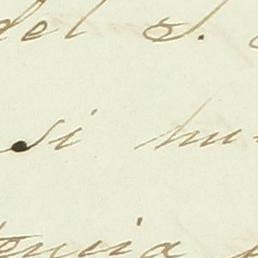 del S.
Si hu-
tencia